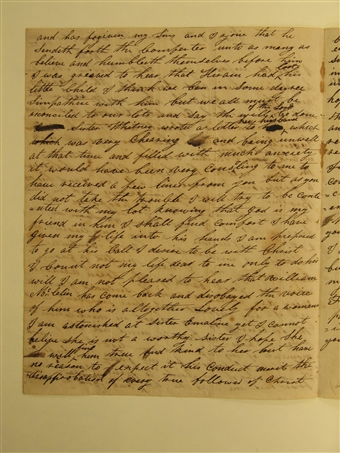 and has forgiven my Sins and I rejoice that he
Sendeth forth the Comforter unto as many as
believe and humbleth themselves before him
I was greaved to hear that Hiram had lost his
little Child I think we can in some degree
Simpathise with him but we all must be
reconsiled to our lots and say the will of the Lord be done
Sister Whitney wrote a letter to her husband which
which was very Chearing and being unwell
at that time and filled with much anxiety
it would have been very Consiling to me to
have received a few lines from you but as you
did not take the trouble I will try to be Conte
anted with my lot knowing that God is my
friend in him I shall find Comfort I have
given my life into his hands I am prepared
to go at his Call I desire to be with Christ
I Count not my life dear to me only to do his
will I am not pleased to hear that William
McLelin has Come back and disobayed the voice
of him who is altogether Lovely for a woman
I am astonished at Sister Emaline yet I cannot
belive she is not a worthy Sister I hope She
will find him true and kind to her but have
no reason to Expect it his Conduct merits the
disapprobation of every true follower of Christ